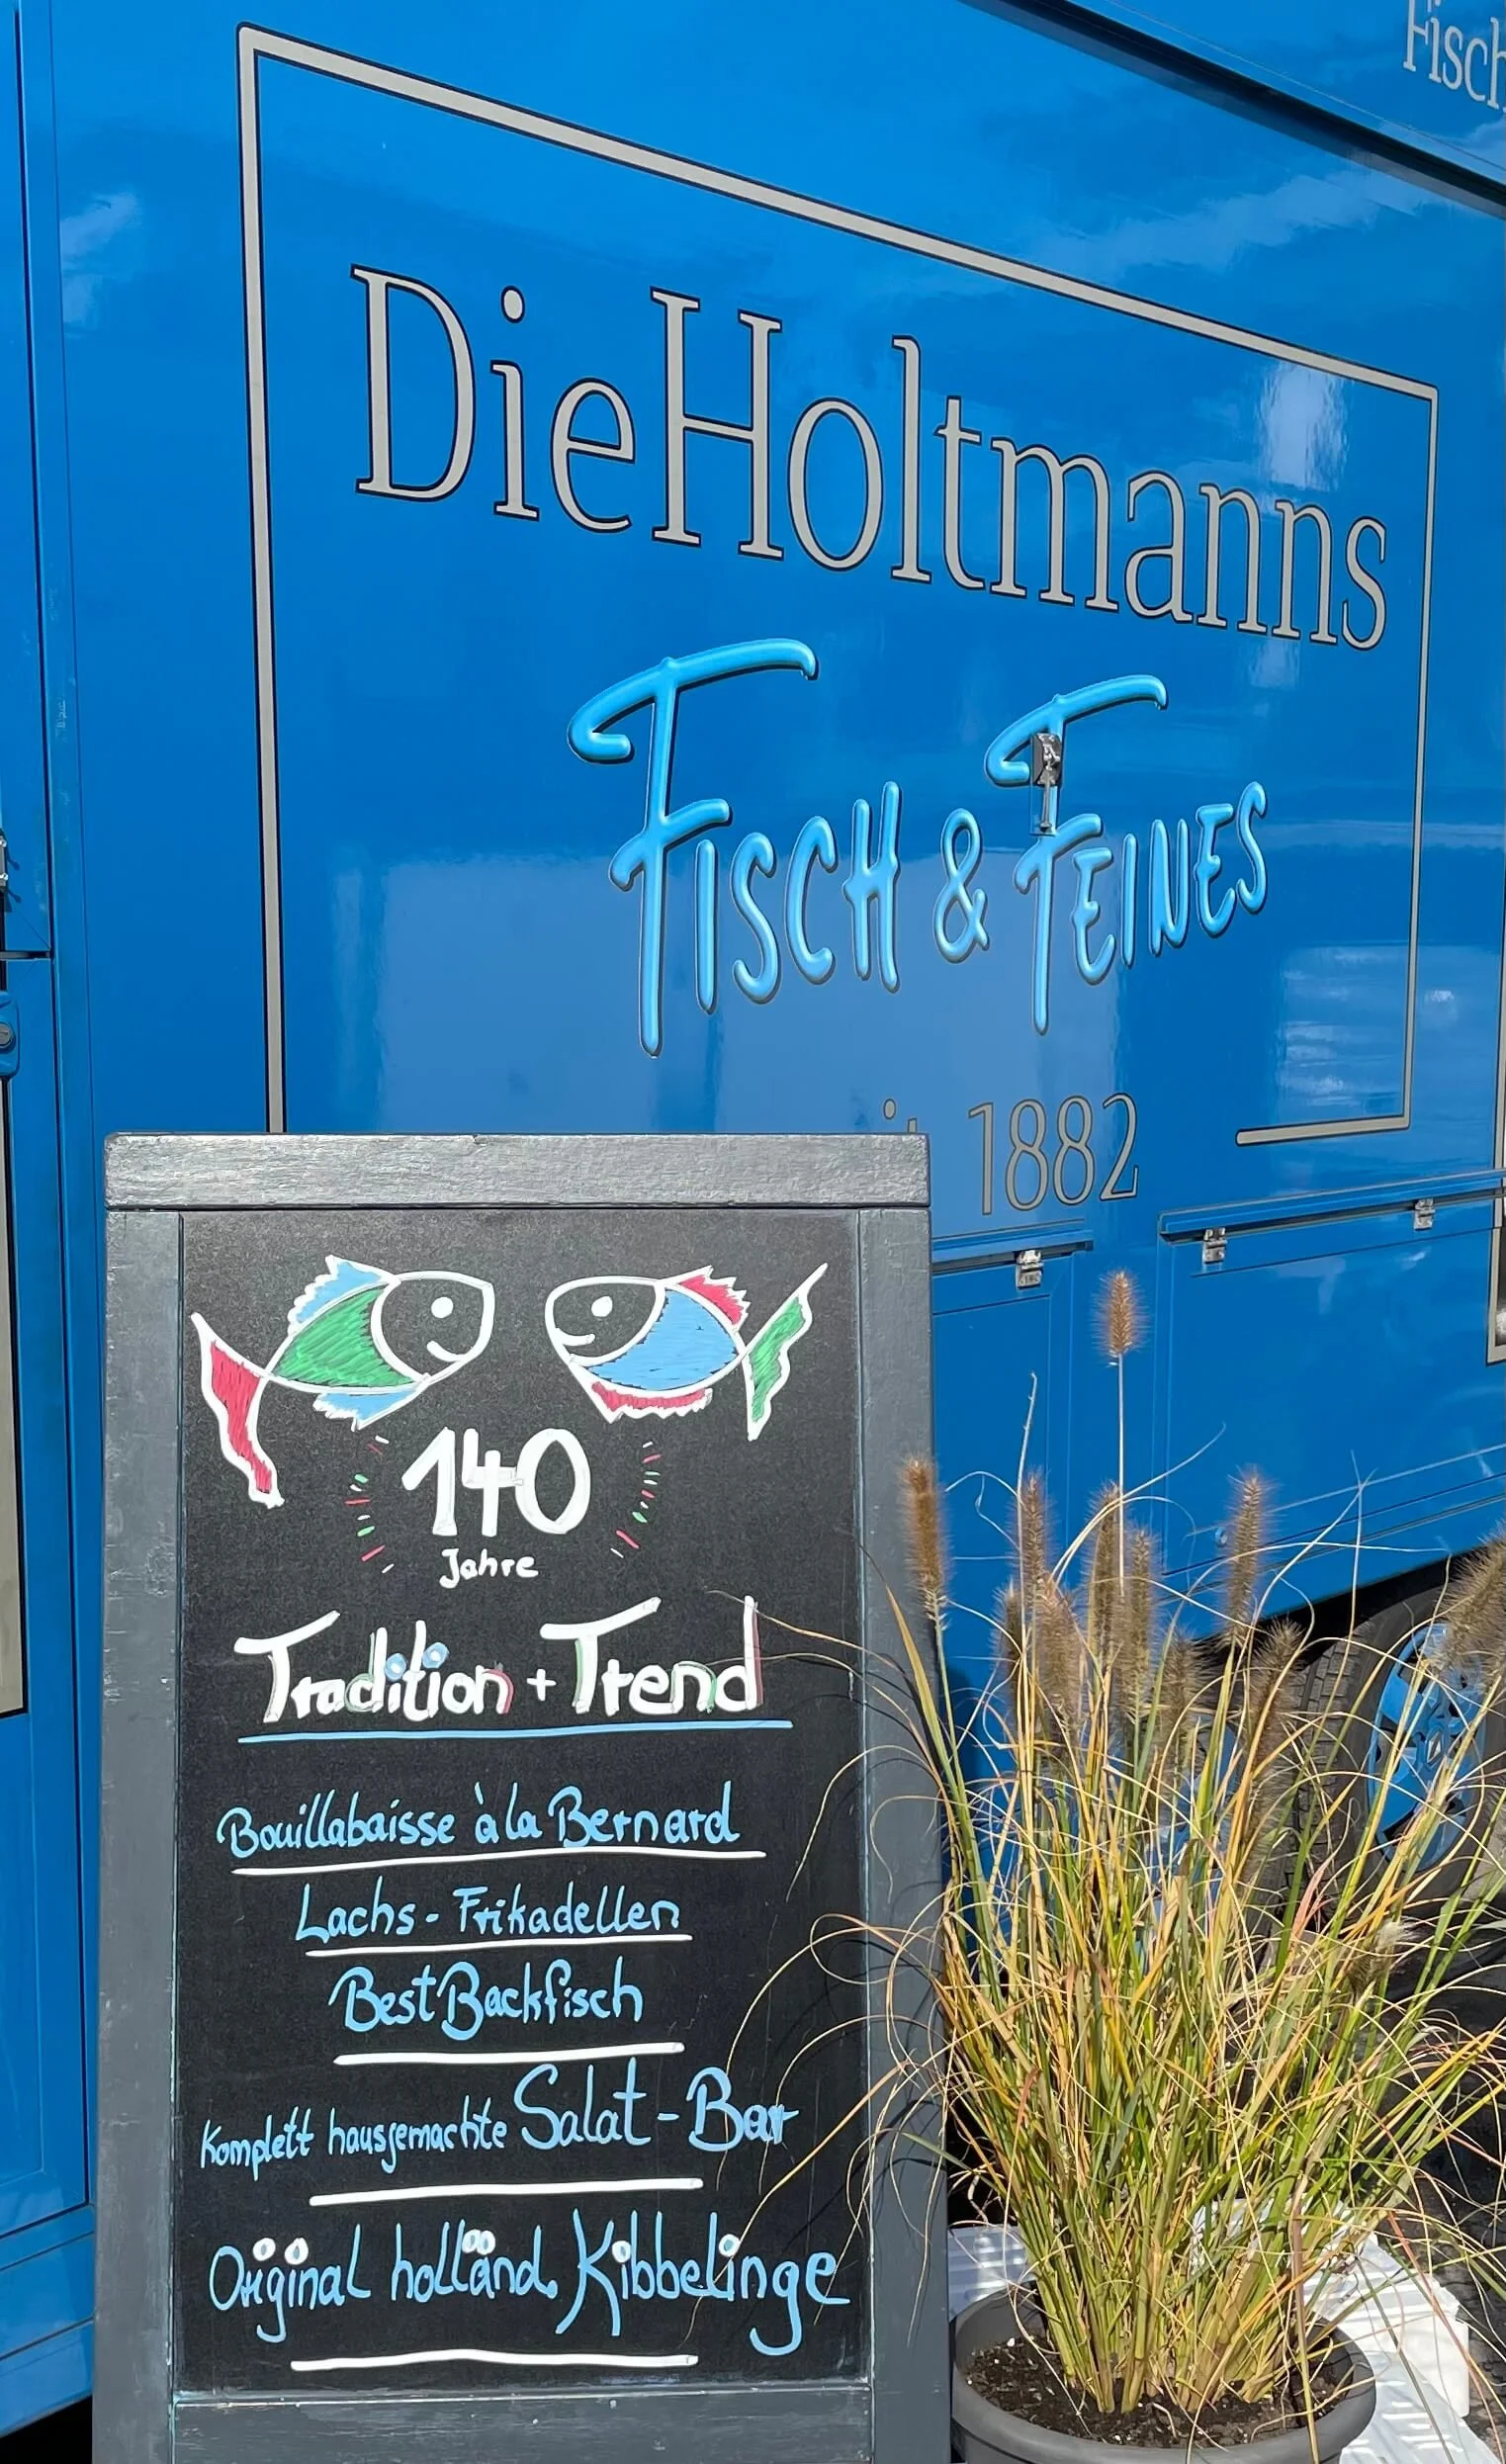 Fisch
DieHoltmanns
FISCH & FEINES
1882
140
Jahre
Tradition + Trend
Bouillabaisse à la Bernard
Lachs - Frikadellen
Best Backfisch
Komplett hausgemachte Salat - Bar
Original holländ. Kibbelinge